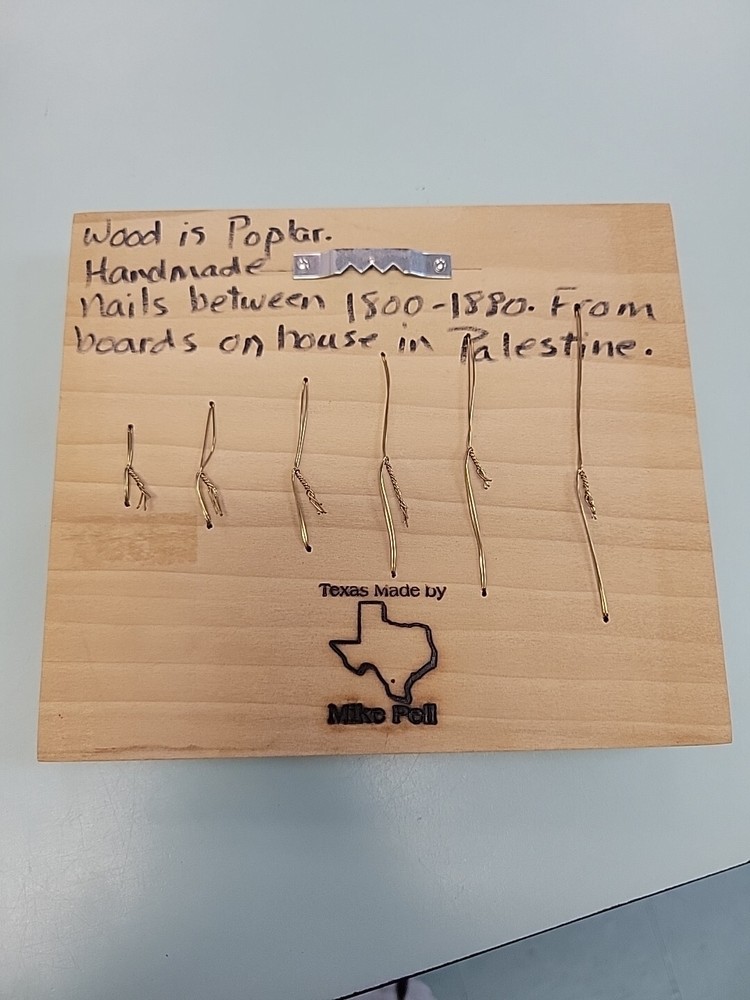 Wood is Poplar.
Handmade
Nails between 1800-1880. From
boards on house in Palestine.
Texas Made by
Mike Pell